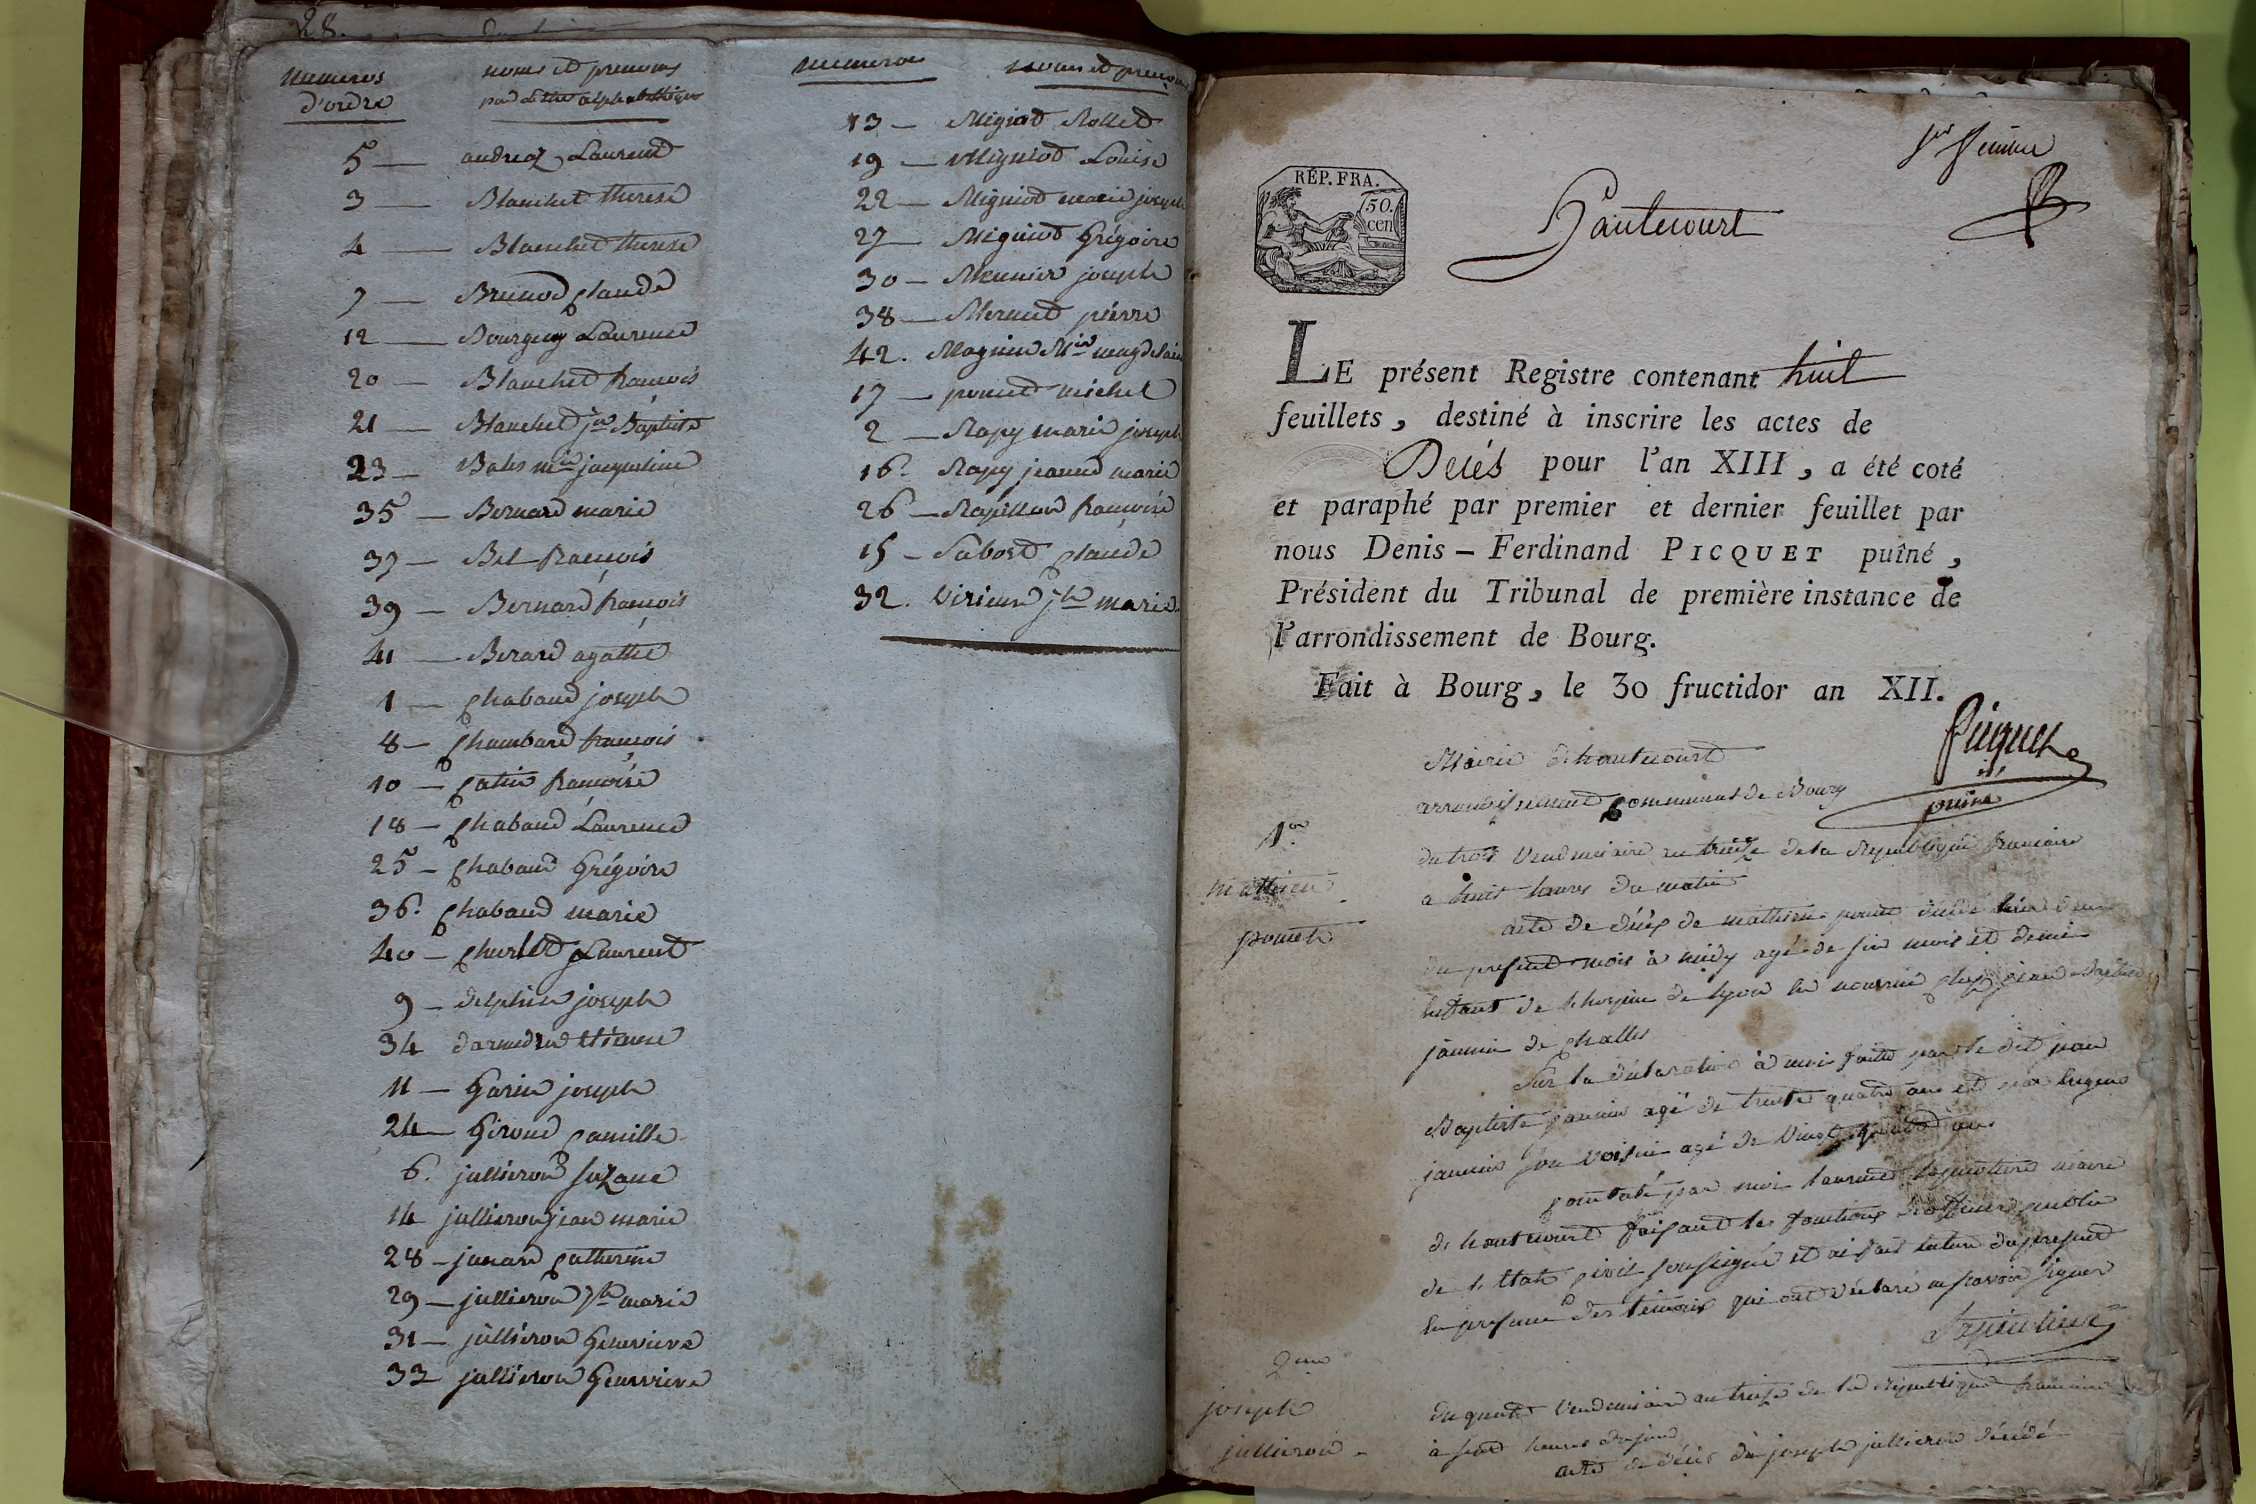 28.
numeros
d'ordre
noms et prenoms
par lettre alphabethique
5 — audreaz Laurent
3 — Blanchet therese
4 — Blanchet therese
7 — Brunod Claude
12 — Bourguy Laurence
20 — Blanchet françois
21 — Blanchet jn Baptiste
23 — mie jacqueline
35 — Bernard marie
37 — Bel françois
39 — Bernard françois
41 — Berard agathe
1 — Chabaud joseph
8 — Chambard françois
10 — Catin françoise
18 — Chabaud Laurence
25 — Chabaud Grégoire
36. Chabaud marie
40 — Laurent
9 — delphin joseph
34 etienne
11 — Garin joseph
24 — Giroud Camille
6. jullieron Suzane
14 jullieron jean marie
28 — Catherine
29 — jullieron jh marie
31 — jullieron Genevieve
33 jullieron Genevieve
numeros
noms et prenoms
13 — Migniot
19 — Migniot Louise
22 — Migniot marie joseph
27 — Migniot Grégoire
30 — Meunier joseph
38 — pierre
42. Mie magdelaine
17 — poncet michel
2 — Rapy marie joseph
16. Rapy jeanne marie
26 — Rapillon françoise
15 — Claude
32. Virieux jh marie
RÉP. FRA.
50.
cen
Hautecourt
LE présent Registre contenant huit
feuillets, destiné à inscrire les actes de
Décés pour l'an XIII, a été coté
et paraphé par premier et dernier feuillet par
nous Denis – Ferdinand PICQUET puîné,
Président du Tribunal de première instance de
l'arrondissement de Bourg.
Fait à Bourg, le 30 fructidor an XII.
Picquet
puiné
Mairie d'hautecourt
arrondissement Communal de Bourg
1er
mathieu
poncet
du trois Vendemiaire an treize de la Republique francaise
a huit heures du matin
acte de décès de mathieu poncet décédé hier deux
du present mois à midy agé de six mois et demie
enfant de l'hospice de lyon en nourrice chez jean Baptiste
jannin de Challes
Sur la déclaration à moi faite par le dit jean
Baptiste jannin agé de trente quatre ans et par
jannin son voisin agé de Vingt ans
Constaté par moi laurent maire
de hautecourt faisant les fonctions d'officier public
de l'etat Civil soussigné et ai fait lecture du present
en presence des temoins qui ont déclaré ne scavoir signer
2eme
joseph
jullieron
du quatre Vendemiaire an treize de la Republique francaise
à heures
acte de décès de joseph jullieron décédé